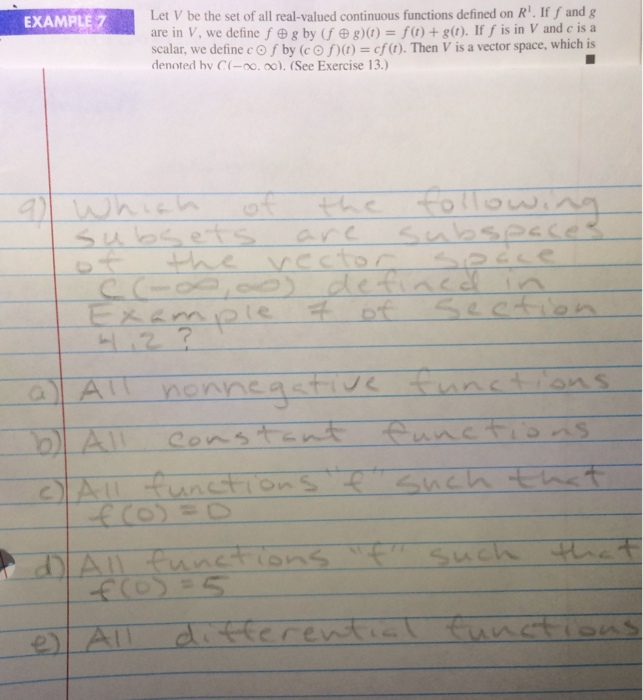 EXAMPLE 7
Let V be the set of all real-valued continuous functions defined on R¹. If f and g
are in V, we define f ⊕ g by (f ⊕ g)(t) = f(t) + g(t). If f is in V and c is a
scalar, we define c ⊙ f by (c ⊙ f)(t) = cf(t). Then V is a vector space, which is
denoted by C(−∞, ∞). (See Exercise 13.)
9) Which of the following
subsets are subspaces
of the vector space
C(-∞,∞) defined in
Example 7 of Section
4.2?
a) All nonnegative functions
b) All constant functions
c) All functions "f" such that
f(0)=0
d) All functions "f" such that
f(0)=5
e) All differential functions